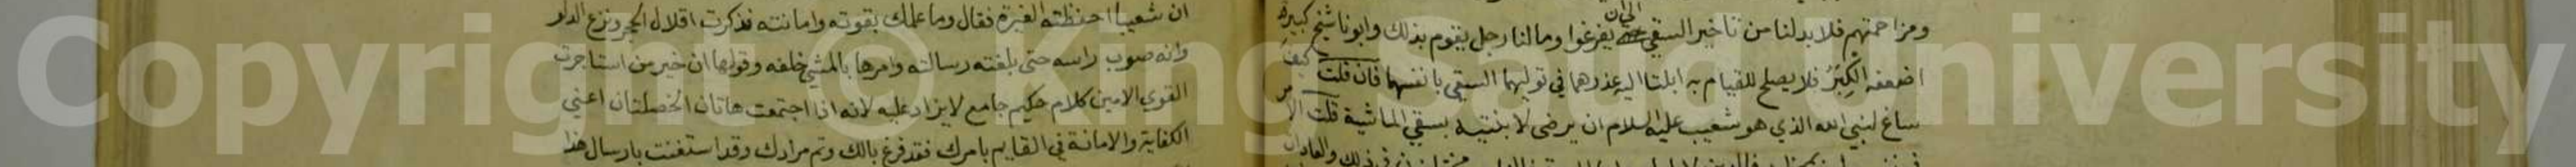 ومزاحمتهم فلا بد لنا من تأخير السقي الى ان يفرغوا وما لنا رجل يقوم بذلك وابونا شيخ كبير
اضعفه الكبر فلا يصلح للقيام به ابلتا اليه عذرهما في توليهما السقي بانفسهما فان قلت كيف
ساغ لنبي الله الذي هو شعيب عليه السلام ان يرضى لابنتيه بسقي الماشية قلت الامر
ان شعيبا احفظته الغيرة فقال وما علمك بقوته وامانته فذكرت اقلال الحجر ونزع الدلو
وانه صوب راسه حتى بلغته رسالته وامرها بالمشي خلفه وقولها ان خير من استاجرت
القوي الامين كلام حكيم جامع لا يزاد عليه لانه اذا اجتمعت هاتان الخصلتان اعني
الكفاية والامانة في القايم بامرك فقد فرغ بالك وتم مرادك وقد استغنت بارسال هذا
Copyright © King Saud University